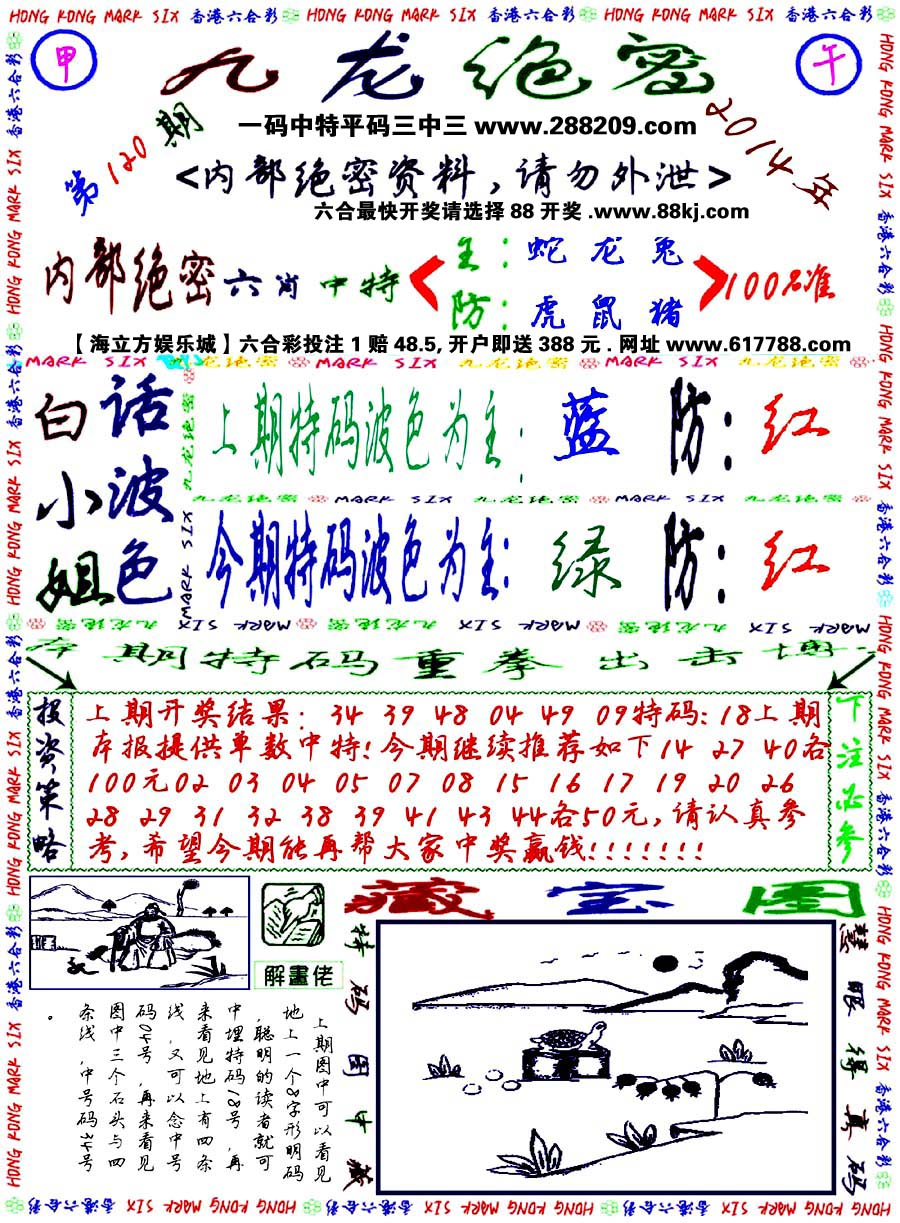 HONG KONG MARK SIX 香港六合彩 HONG KONG MARK SIX 香港六合彩 HONG KONG MARK SIX 香港六合彩
甲 九龙绝密 午
第120期
2014年
一码中特平码三中三 www.288209.com
<内部绝密资料,请勿外泄>
六合最快开奖请选择 88 开奖 .www.88kj.com
内部绝密六肖中特
主:蛇龙兔
防:虎鼠猪
100%准
【海立方娱乐城】六合彩投注 1 赔 48.5, 开户即送 388 元 . 网址 www.617788.com
白小姐
话波色
上期特码波色为主:蓝 防:红
九龙绝密 MARK SIX 九龙绝密 MARK SIX 九龙绝密
今期特码波色为主:绿 防:红
本期特码重拳出击博
投资策略
上期开奖结果:34 39 48 04 49 09特码:18上期
本报提供单数中特!今期继续推荐如下14 27 40各
100元02 03 04 05 07 08 15 16 17 19 20 26
28 29 31 32 38 39 41 43 44各50元,请认真参
考,希望今期能再帮大家中奖赢钱!!!!!!!
下注必参
藏宝图
解畫佬
特码图中藏
慧眼得真码
上期图中可以看见
地上一个8字形明码
,聪明的读者就可
中埋特码18号,再
来看见地上有四条
线,又可以念中号
码04号,再来看见
图中三个石头与四
条线,中号码34号
。